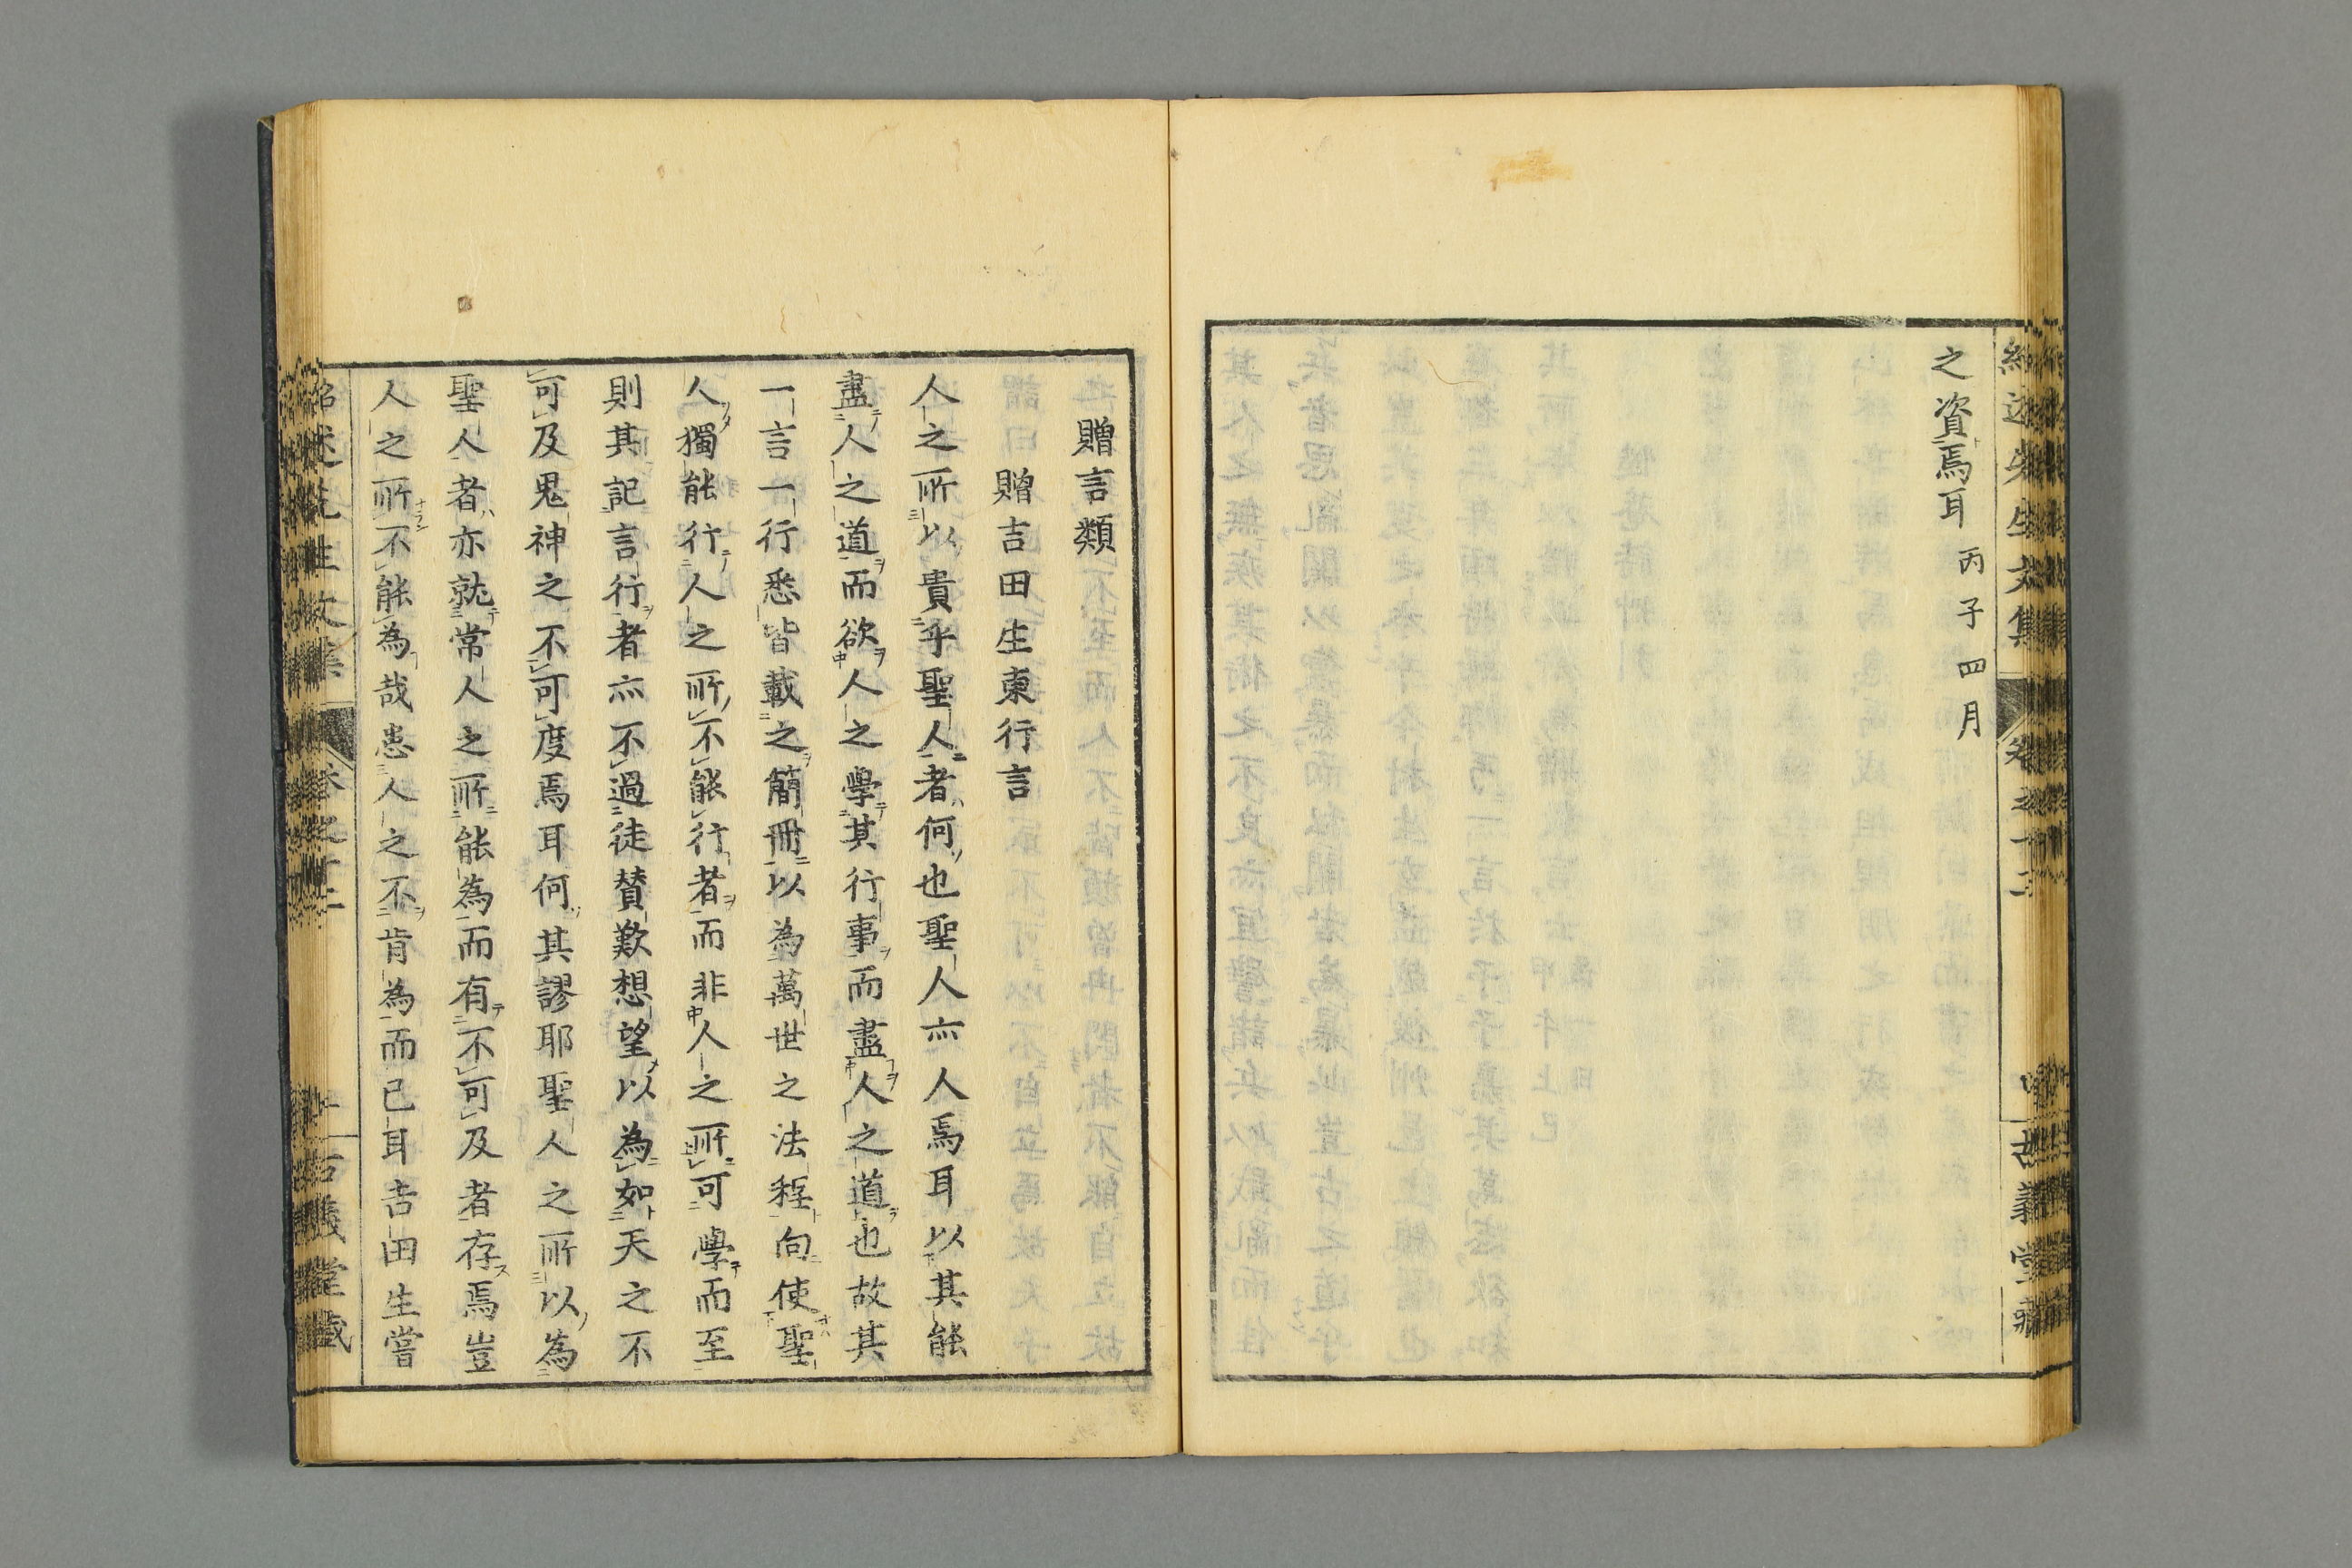 之資焉耳 丙子四月
贈言類
贈吉田生東行言
人之所以貴乎聖人者何也聖人亦人焉耳以其能
盡人之道而欲人之學其行事而盡人之道也故其
一言一行悉皆載之簡冊以為萬世之法程向使聖
人獨能行人之所不能行者而非人之所可學而至
則其記言行者亦不過徒賛歎想望以為如天之不
可及鬼神之不可度焉耳何其謬耶聖人之所以為
聖人者亦就常人之所能為而有不可及者存焉豈
人之所不能為哉患人之不肯為而已耳吉田生嘗
紹述先生文集 卷之十二 古義堂藏